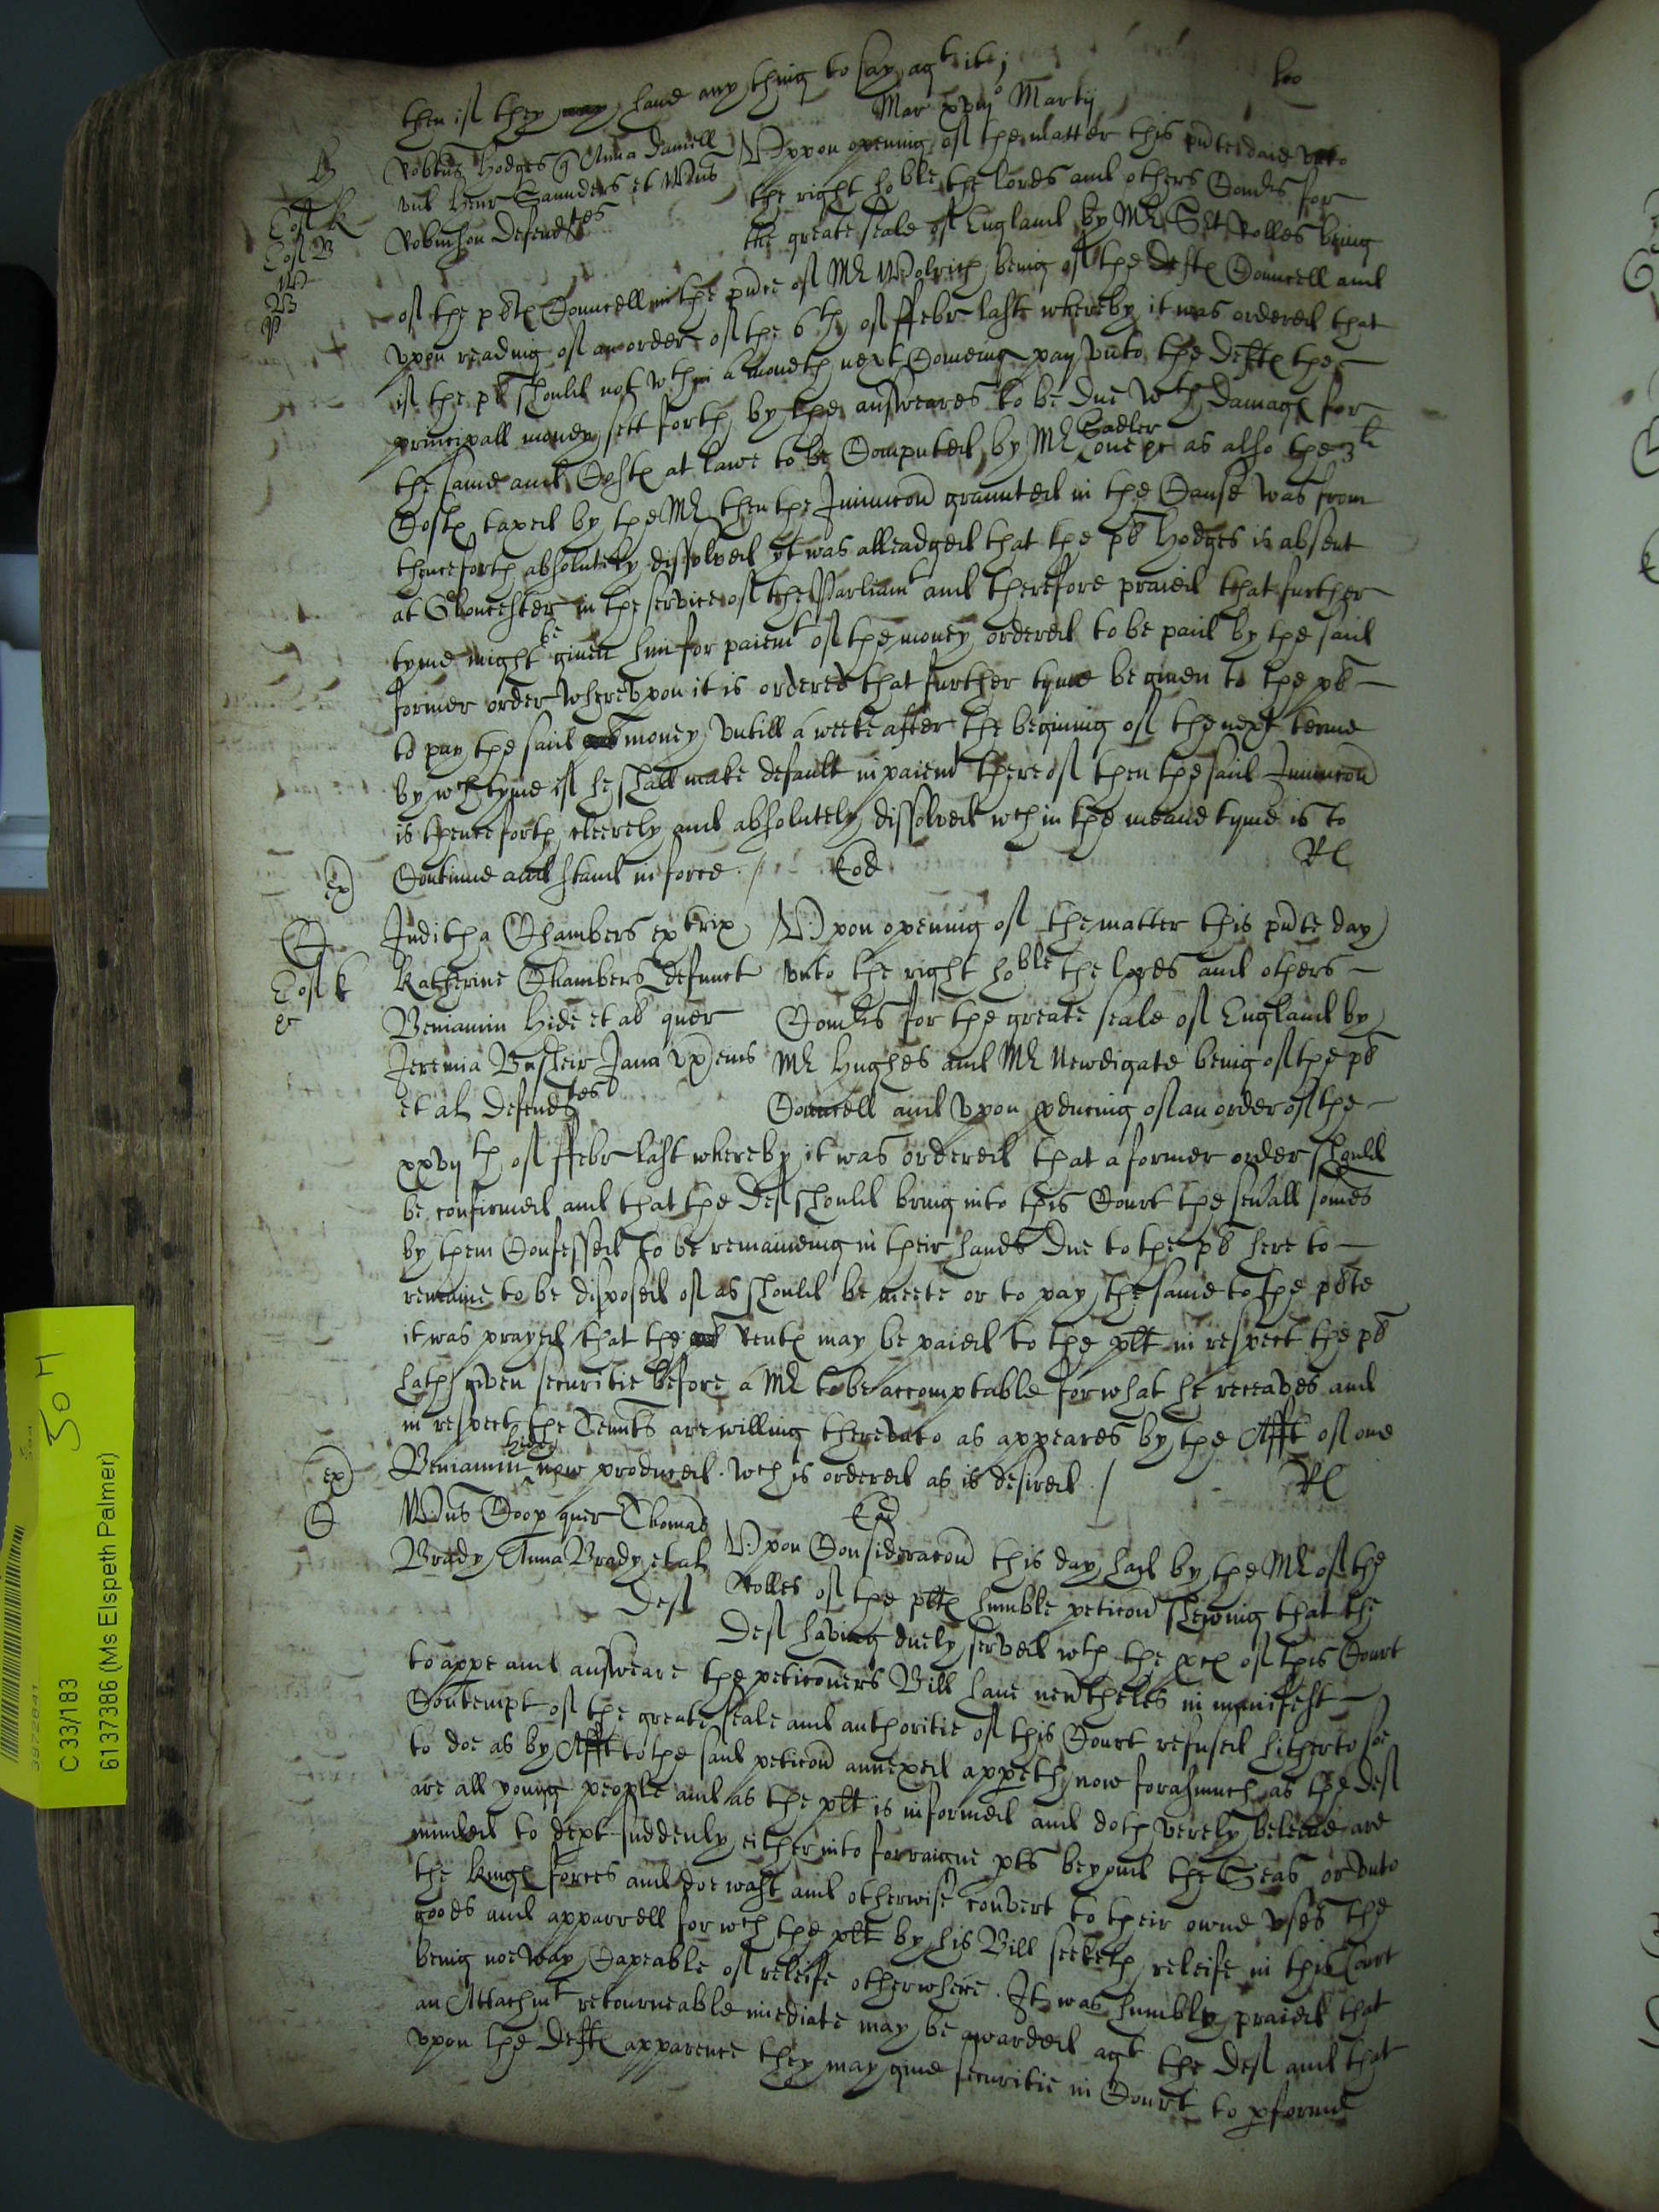 then if they may have any thing to say agt it;
Mar xxvjo Martij
Robtus Hodges q Anna Daniell
vid Henr Saunders et Willus
Robinson Defendtes
Vppon opening of the matter this pnte daie vnto
the right hoble the lords and others Comrs for
the greate seale of England by Mr Sjt Rolles being
of the plts Councell in the pnce of Mr Wolrich being of the defts Councell and
vpon reading of an order of the 6th of ffebr last whereby it was ordered that
if the pl should not wthin a moneth next Comeing pay vnto the defts the
principall money sett forth by the answeares to be due wth damages for
the same and Costs at lawe to be Computed by Mr Sadler one &c as also the 3li
Costs taxed by the Mr then the Iniuncon graunted in the Cause was from
thenceforth absolutely dissolved yt was alleadged that the pl Hodges is absent
at Gloucester in the service of the Parliamt and therefore praied that further
tyme might be given him for paiemt of the money ordered to be paid by the said
former order whervpon it is ordered that further tyme be given to the pl
to pay the said money vntill a weeke after the begining of the next terme
by wch tyme if he shall make default in paiemt thereof then the said Iniuncon
is thenceforth cleerely and absolutely dissolved wch in the meane tyme is to
Continue and stand in force. Eod Rl
ex
Juditha Chambers extrix
Katherine Chambers defunct
Beniamin Hide et al quer
Jeremia Basheir Jana vx eius
et al Defendtes
Vpon opening of the matter this pnte day
vnto the right hoble the lords and others
Comrs for the greate seale of England by
Mr Hughes and Mr Newdigate being of the pl
Councell and vpon pducing of an order of the
xxvijth of ffebr last whereby it was ordered that a former order should
be confirmed and that the Def should bring into this Court the seuall somes
by them Confessed to be remaineing in their hands due to the pl here to
remaine to be disposed of as should be meete or to pay the same to the plte
it was prayed that the rents may be paied to the plt in respect the pl
hath given securitie before a Mr to be accomptable for what he receaves and
in respect the Tennts are willing therevnto as appeares by the Afft of one
Beniamin Hide now produced. wch is ordered as is desired. / Rl
ex
Willus Coop quer Thomas
Brady Anna Brady et al
Def
Eod
Vpon Consideracon this day had by the Mr of the
Rolles of the plts humble peticon shewing that the
Def having duely served wth the pces of this Court
to appe and answeare the peticoners Bill have neutheles in manifest
Contempt of the greate seale and authoritie of this Court refused hitherto soe
to doe as by Afft to the said peticon annexed appeth now forasmuch as the Def
are all young people and as the plt is informed and doth verely beleeve are
minded to dept suddenly either into forraigne pts beyond the Seas or vnto
the kings forces and doe wast and otherwise convert to their owne vses the
goods and apparrell for wch the plt by his Bill seeketh releife in this Court
being noe way Capeable of releife otherwhere. It was humbly praied that
an Attachmt retourneable imediate may be awarded agt the Def and that
vpon the Defts apparence they may give securitie in Court to pforme
C 33/183
6137386 (Ms Elspeth Palmer)